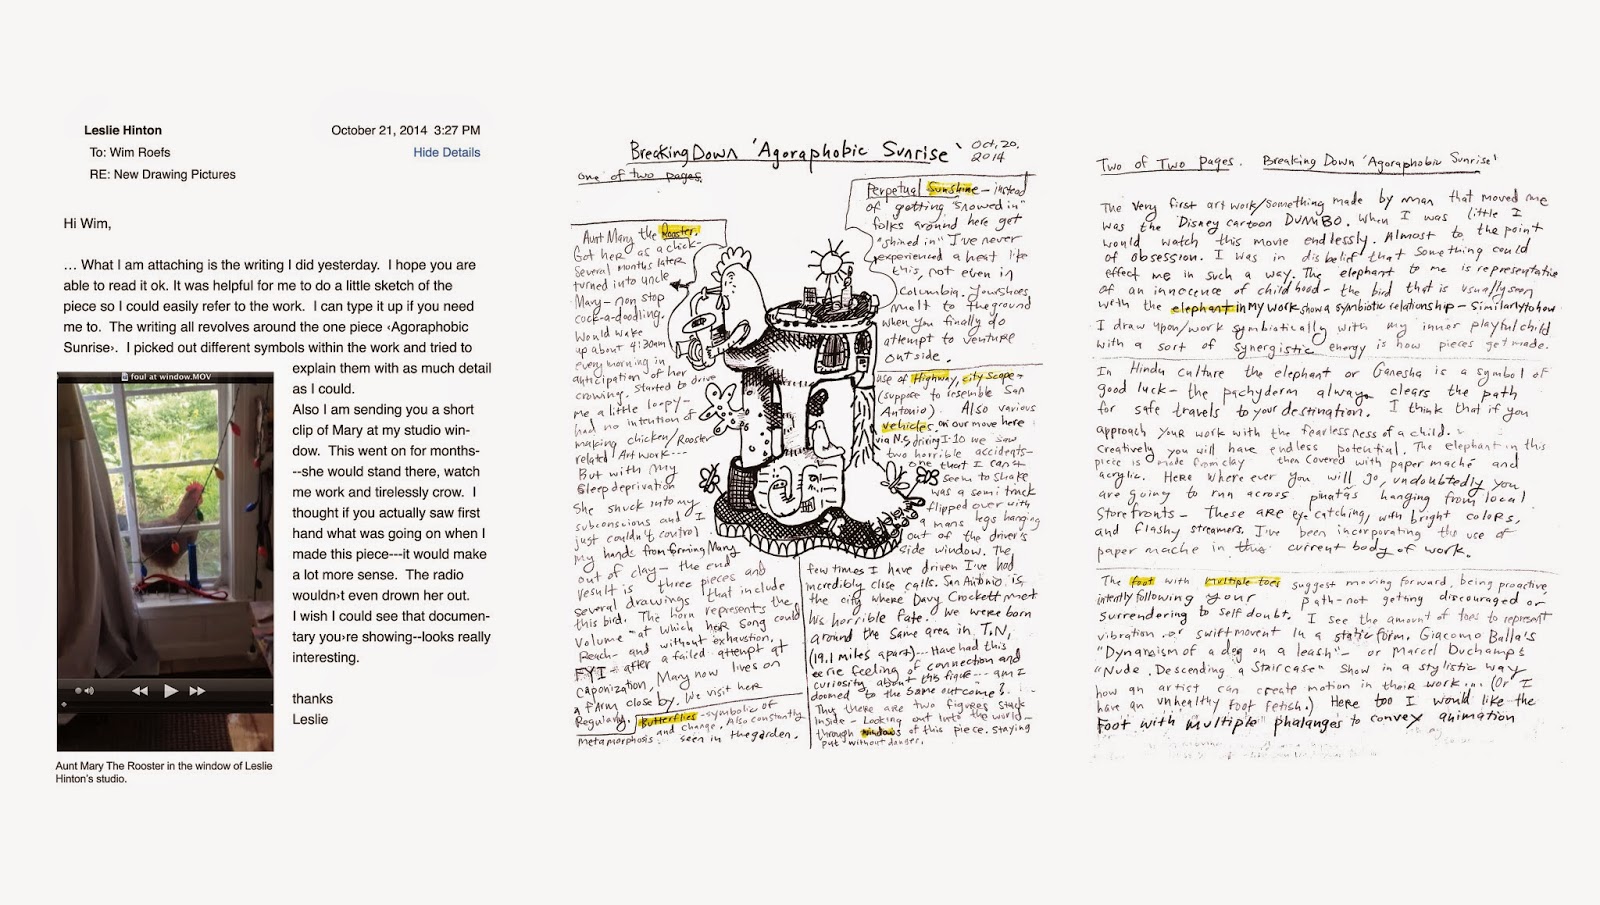 Leslie Hinton
October 21, 2014 3:27 PM
To: Wim Roefs
Hide Details
RE: New Drawing Pictures
Hi Wim,
… What I am attaching is the writing I did yesterday. I hope you are
able to read it ok. It was helpful for me to do a little sketch of the
piece so I could easily refer to the work. I can type it up if you need
me to. The writing all revolves around the one piece ‹Agoraphobic
Sunrise›. I picked out different symbols within the work and tried to
explain them with as much detail
as I could.
Also I am sending you a short
clip of Mary at my studio win-
dow. This went on for months-
--she would stand there, watch
me work and tirelessly crow. I
thought if you actually saw first
hand what was going on when I
made this piece---it would make
a lot more sense. The radio
wouldn›t even drown her out.
I wish I could see that documen-
tary you›re showing--looks really
interesting.
thanks
Leslie
foul at window.MOV
Aunt Mary The Rooster in the window of Leslie
Hinton's studio.
Breaking Down 'Agoraphobic Sunrise'
Oct, 20,
2014
one of two pages.
Aunt Mary the Rooster.
Got her as a chick-
Several months later
turned into uncle
Mary - non stop
cock-a-doodling.
Would wake
up about 4:30am
every morning in
anticipation of her
crowing. Started to drive
me a little loopy-
had no intention of
making chicken/Rooster
related Art work---
But with my
sleep deprivation
She snuck into my
subconscious and I
just couldn't control
my hands from forming Mary
out of clay - the end
result is three pieces and
several drawings that include
this bird. The horn represents the
volume at which her song could
Reach - and without exhaustion.
FYI - after a failed attempt at
caponization, Mary now lives on
a farm close by. We visit her
Regularly.
Butterflies - symbolic of
metamorphosis and change. Also constantly
seen in the garden.
Perpetual Sunshine - instead
of getting "snowed in"
folks around here get
"shined in" I've never
experienced a heat like
this, not even in
Columbia. Your shoes
melt to the ground
when you finally do
attempt to venture
outside.
use of Highway, city scope +
(suppose to resemble San
Antonio). Also various
vehicles, on our move here
via N.S, driving I-10 we saw
two horrible accidents-
one that I can't
seem to shake
was a semi truck
flipped over with
a mans legs hanging
out of the driver's
side window. The
few times I have driven I've had
incredibly close calls. San Antonio is
the city where Davy Crockett met
his horrible fate. We were born
around the same area in T.N,
(19.1 miles apart)--- Have had this
eerie feeling of connection and
curiosity about this figure --- am I
doomed to the same outcome?
Thus there are two figures stuck
inside - Looking out into the world -
through windows of this piece. staying
put without danger.
Two of Two Pages. Breaking Down 'Agoraphobic Sunrise'
The very first art work/something made by man that moved me
was the Disney cartoon DUMBO. When I was little I
would watch this movie endlessly. Almost to the point
of obsession. I was in disbelief that something could
effect me in such a way. The elephant to me is representative
of an innocence of childhood - the bird that is usually seen
with the elephant in my work show a symbiotic relationship - Similarly to how
I draw upon/work symbiotically with my inner playful child
with a sort of synergistic energy is how pieces get made.
In Hindu culture the elephant or Ganesha is a symbol of
good luck - the pachyderm always clears the path
for safe travels to your destination. I think that if you
approach your work with the fearlessness of a child.
creatively you will have endless potential. The elephant in this
piece is made from clay then covered with paper maché and
acrylic. Here where ever you will go, undoubtedly you
are going to run across piñatas hanging from local
storefronts - These are eye catching, with bright colors,
and flashy streamers. I've been incorporating the use of
paper mache in this current body of work.
The foot with multiple toes suggest moving forward, being proactive,
intently following your path - not getting discouraged or
surrendering to self doubt. I see the amount of toes to represent
vibration or swift movent in a static form. Giacomo Balla's
"Dynamism of a dog on a leash" - or Marcel Duchamp's
"Nude Descending a Staircase" show in a stylistic way
how an artist can create motion in their work... (Or I
have an unhealthy foot fetish.) Here too I would like the
foot with multiple phalanges to convey animation